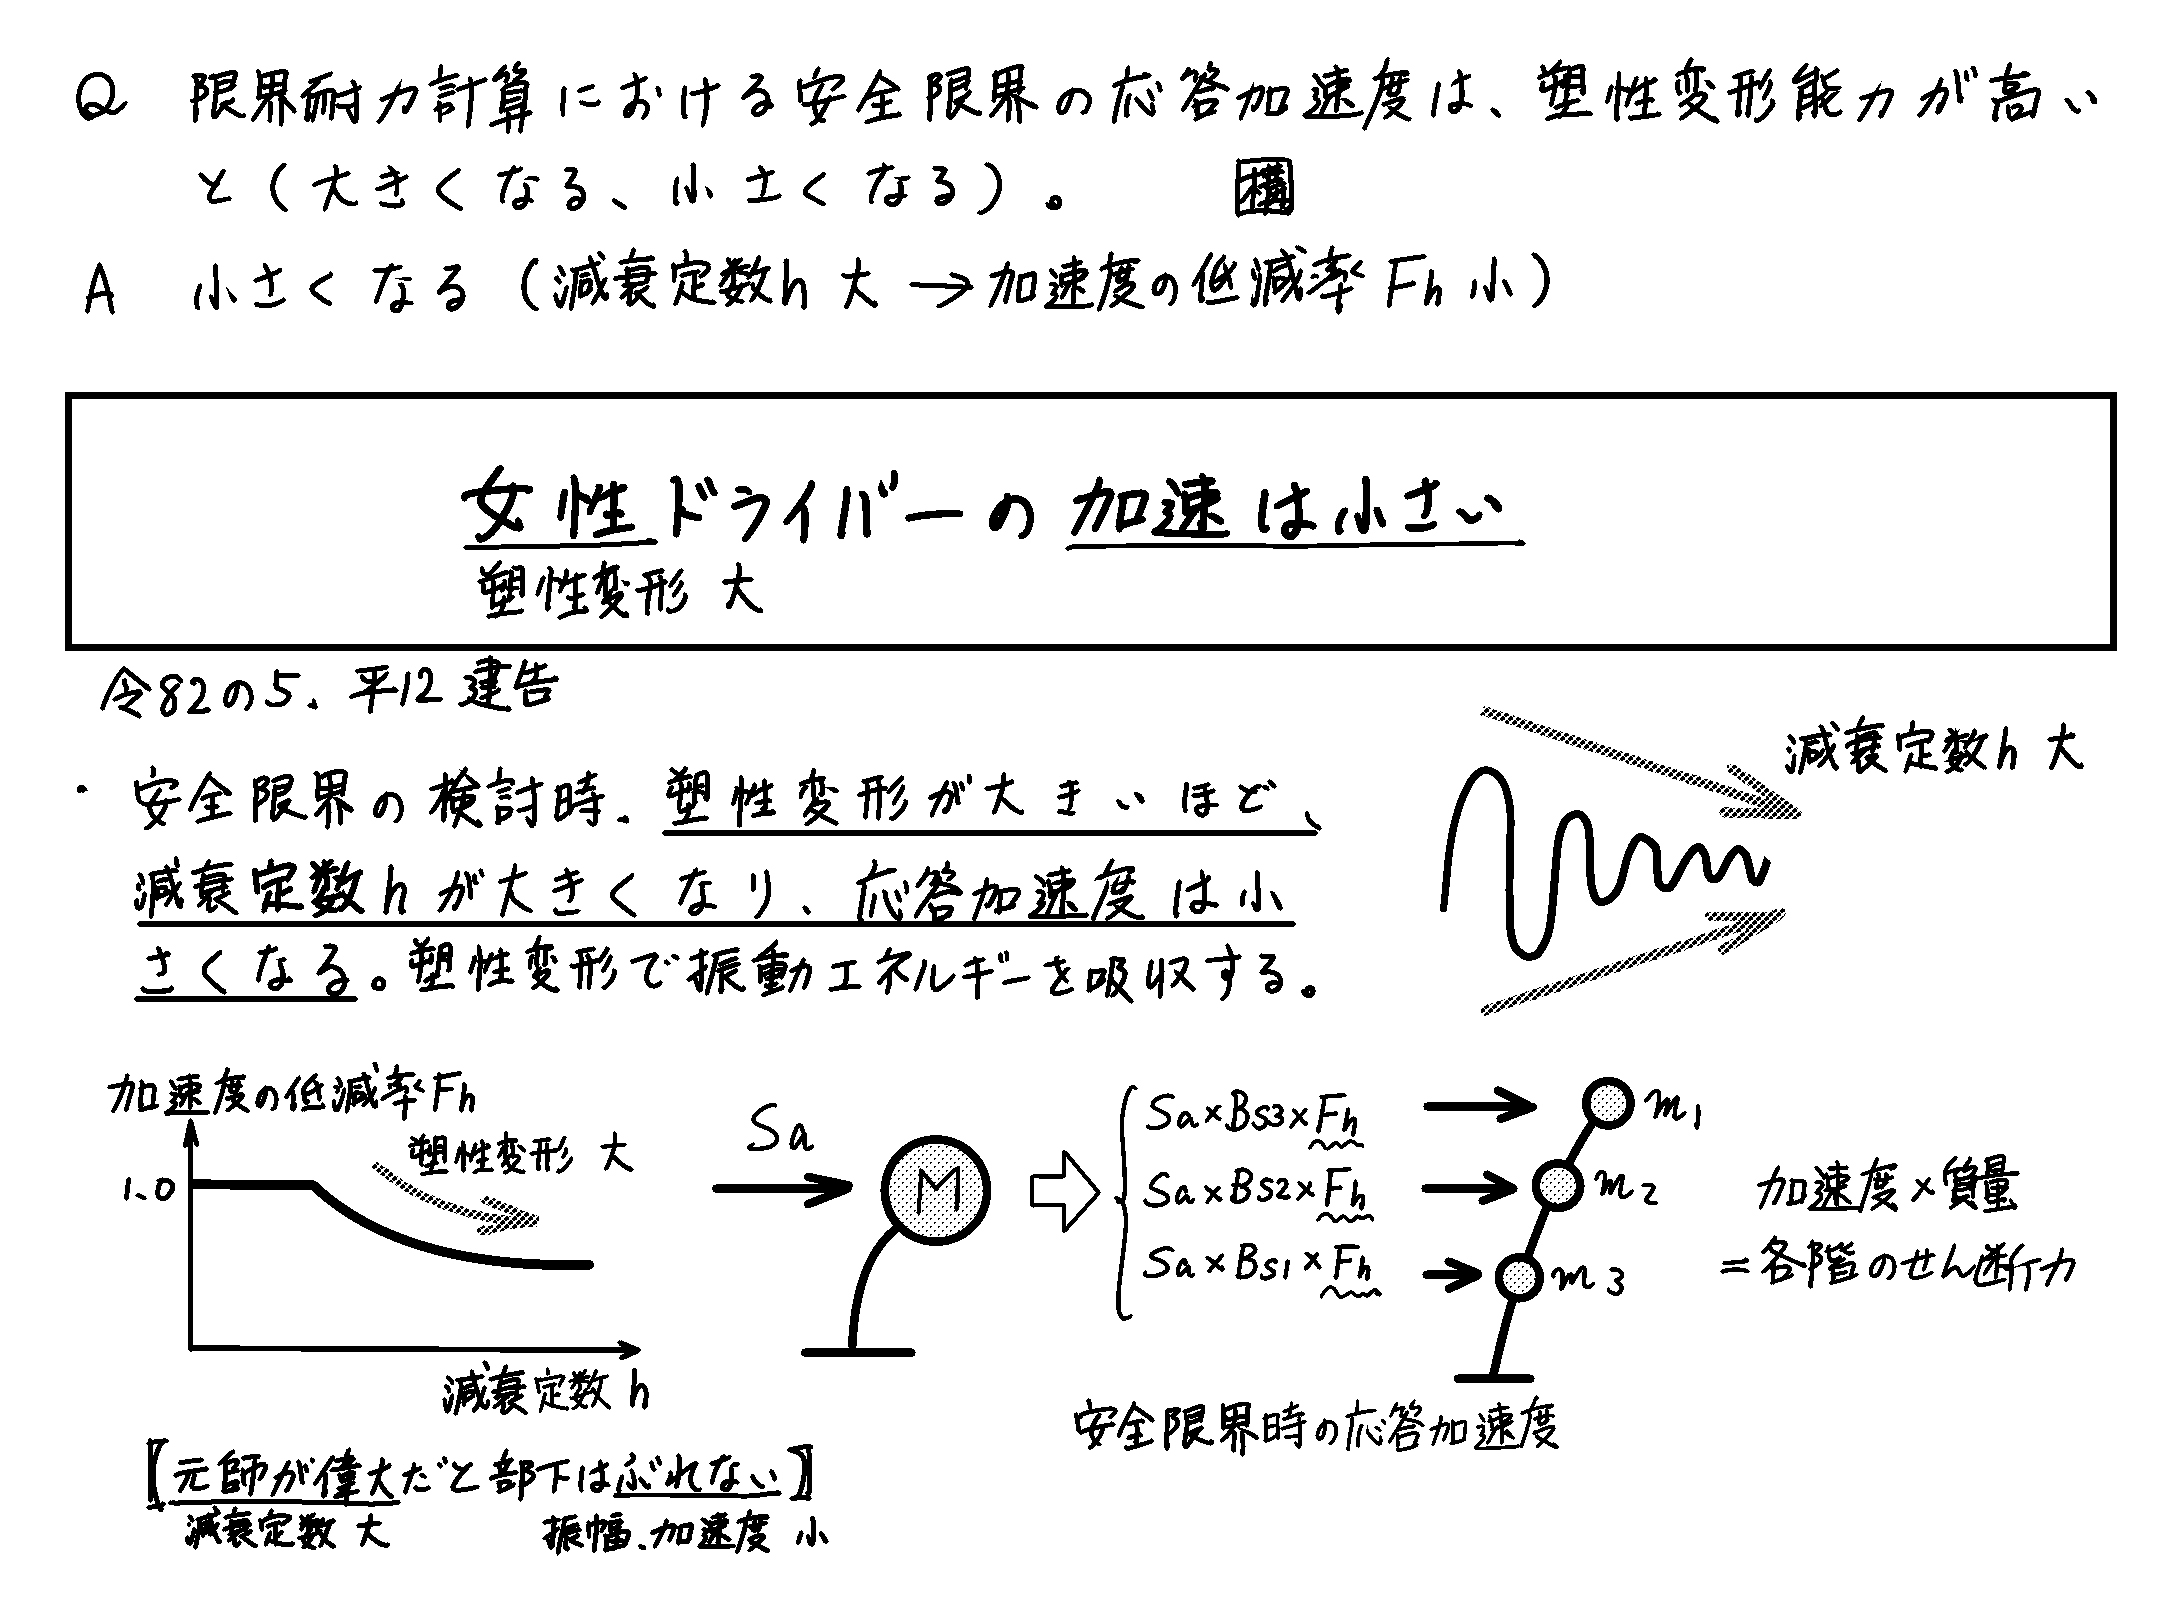 Q 限界耐力計算における安全限界の応答加速度は、塑性変形能力が高い
と(大きくなる、小さくなる)。 構
A 小さくなる(減衰定数h 大→加速度の低減率 Fh 小)
女性ドライバーの加速は小さい
塑性変形 大
令82の5. 平12建告
・安全限界の検討時、塑性変形が大きいほど、
減衰定数hが大きくなり、応答加速度は小
さくなる。塑性変形で振動エネルギーを吸収する。
減衰定数h 大
加速度の低減率Fh
塑性変形 大
1.0
減衰定数 h
Sa
M
Sa×Bs3×Fh
Sa×Bs2×Fh
Sa×Bs1×Fh
m1
m2
m3
加速度×質量
=各階のせん断力
安全限界時の応答加速度
【元師が偉大だと部下はぶれない】
減衰定数 大 振幅、加速度 小